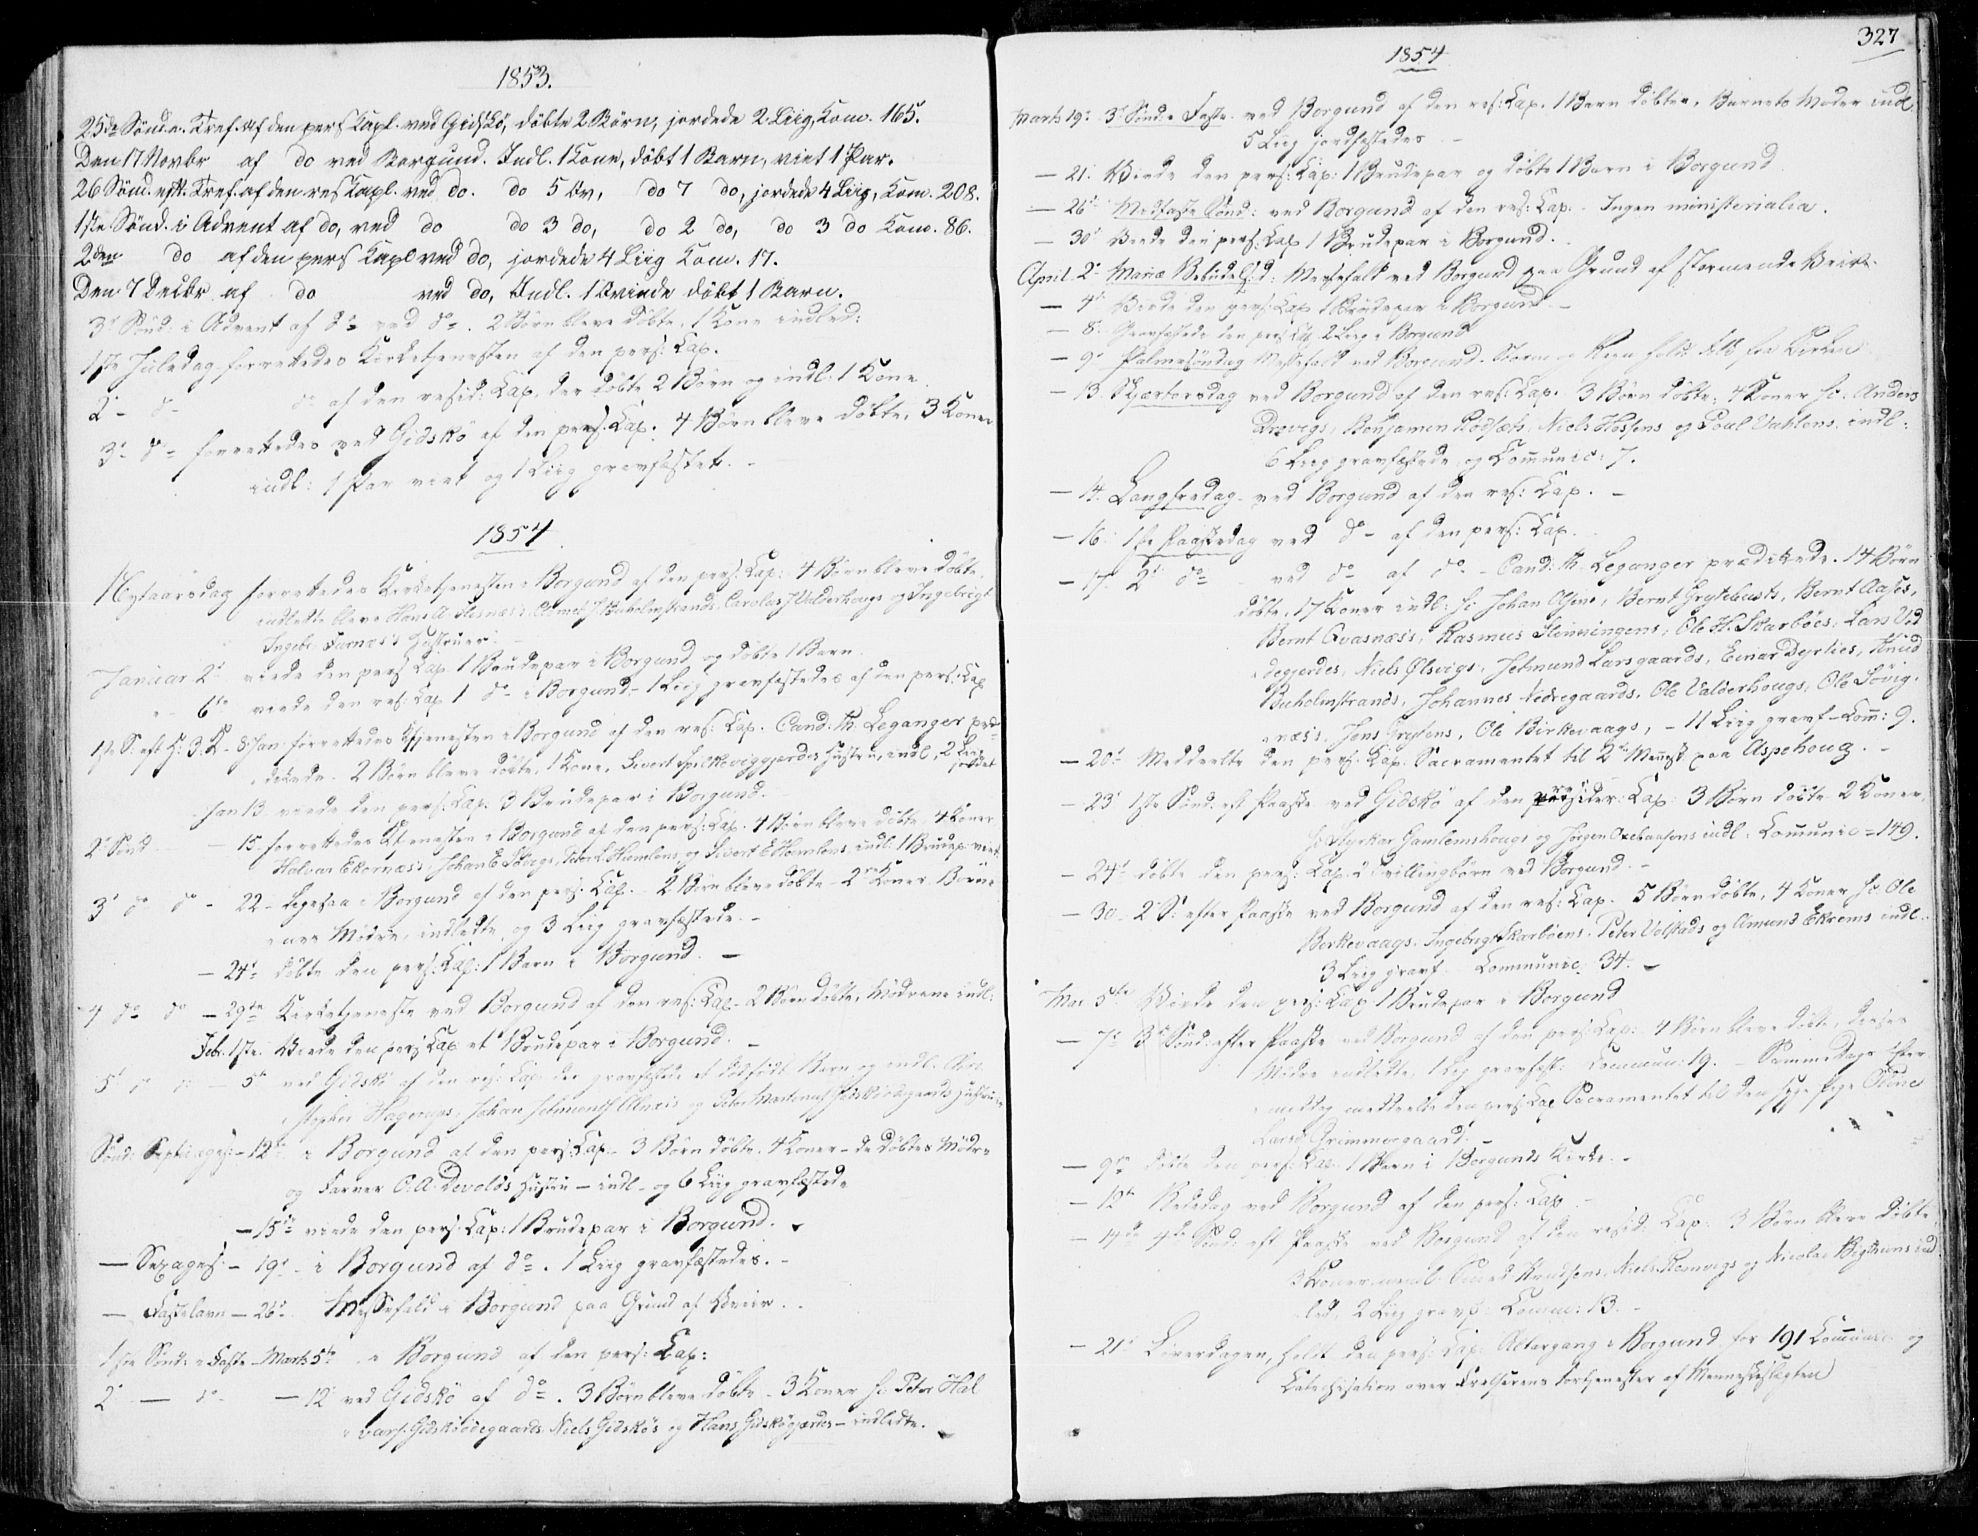 1853.
25de Sønd. e. Tref. af den pers Capl. ved Gidskø, døbte 2 Børn, jordede 2 Liig, Kom. 165.
Den 17 Novbr af do ved Borgund. Indl. 1 Kone, døbt 1 Barn, viet 1 Par.
26 Sønd. eft. Tref. af den res Capl. ved do. do 5 Kv, do 7 do, jordede 4 Liig, Kom. 208.
1ste Sønd. i Advent af do, ved do do 3 do, do 2 do, do 3 do Kom. 86.
2den do af den pers Kapl ved do, jordede 4 Liig Kom. 17.
Den 7 Decbr af do ved do, Indl. 1 Kvinde døbt 1 Barn.
3d Sønd: i Advent af do ved do. 2 Børn bleve døbte, 1 Kone indled:
1ste Juledag forrettedes Kirketjenesten af den pers: Cap.
2d - d - do af den resid: Cap, der døbte 2 Børn og indl. 1 Kone.
3d do forrettedes ved Gidskø af den pers. Cap. 4 Børn bleve døbte, 3 Koner
indl: 1 Par viet og 1 Liig gravfæstet. -
1854
Nytaarsdag forrettedes Kirketjenesten i Borgund af den pers. Cap: 4 Børn bleve døbte,
indledte bleve Hans A. Flesnæs's, Buholmstrands, Carolus J Valderhougs og Ingebrigt
Ingebr. Furnæs's Hustruer. -
Januar 2d viede den pers Cap 1 Brudepar i Borgund og døbte 1 Barn
" 6te viede den res: Cap 1 do i Borgund - 1 Liig gravfæstedes af den pers: Cap
1ste S: eft H: 3 K - 8 Jan: forrettedes Ktjenesten i Borgund af den res: Cap. Cand: Th. Leganger præ-
dikede. 2 Børn bleve døbte, 1 Kone, Sivert Spilkeviggjerdes Hustru, indl, 2 Liig jordet
Jan 13 viede den pers: Cap. 3 Brudepar i Borgund. -
2d Sønd - 15 forrettedes Ktjenesten i Borgund af den pers: Cap. 4 Børn bleve døbte, 4 Koner
Halvar Ekornæs's, Johan E. , Peter L. Humlens og Sivert E Humlens indl. 1 Brudep. viet.
3d do do - 22 - Ligesaa i Borgund af den pers: Cap. - 2 Børn bleve døbte - 2 Koner Børne-
nes Mødre, indledte, og 3 Liig gravfæstede. -
- 24d døbte den pers: Cap: 1 Barn i Borgund. -
4 do do - 29de Kirketjeneste ved Borgund af den res: Cap - 2 Børn døbte, Mødrene indl:
Febr. 1ste. Viede den pers Cap et Brudepar i Borgund. -
5d d d - 5d ved Gidskø af den res: Cap. der gravfæstede et dødfødt Barn og indl.
Hagerups, Johan og Peter Martinus Gidskødegaards Hustruer
Sønd: Septuages: - 12te i Borgund af den pers: Cap - 3 Børn døbte, 4 Koner - de døbtes Mødre
og Farner O. A. Devolds Hustru - indl - og 6 Liig gravfæstede
- 15de viede den pers: Cap: 1 Brudepar i Borgund.
- Sexages: - 19d - i Borgund af do. 1 Liig gravfæstedes. -
- Fastelavn - 26d Messefald i Borgund paa Grund af Uveir. -
1ste Sønd: i Faste - Marts 5te i Borgund af den pers: Cap:
2d - d - - 12 ved Gidskø af do. 3 Børn bleve døbte - 3 Koner sc: Peter Hal-
vars. Gidskødegaards, Niels Gidskøs og Hans Gidskøgjærdes - indledte.
327
1854
Marts 19d 3d Sønd. i Faste. ved Borgund af den res: Cap. 1 Barn døbtes, Barnets Moder indl,
5 Liig jordfæstedes. -
- 21. Viede den pers: Cap: 1 Brudepar og døbte 1 Barn i Borgund.
- 26d Midfaste Sønd: ved Borgund af den res: Cap. Ingen ministerialia.
- 30d Viede den pers: Cap 1 Brudepar i Borgund. -
April 2d Mariæ Bebudelsesd: Messefald ved Borgund paa Grund af stormende Veir.
- 4d Viede den pers: Cap 1 Brudepar i Borgund. -
- 8. Gravfæstede den pers: Cap. 2 Liig i Borgund
- 9d Palmesøndag Messefald ved Borgund. Storm og Regn holdt folk fra Kirken
- 13 Skjærtorsdag ved Borgund af den res: Cap. 3 Børn døbte, 4 Koner sc: Anders
Drøvigs, Benjamin Rødsæts, Niels Hessens og Poul Vahlens indl:
6 Liig gravfæstede og Communic: 7.
- 14. Langfredag ved Borgund af den res: Cap. -
- 16 1ste Paaskedag ved do - af den pers: Cap.
- 17 2d do ved do af do - Cand: Th. Leganger prædikede. 14 Børn
døbte, 17 Koner indl: sc Johan Olsens, Bernt Grytebusts, Bernt Aases,
Bernt Qvasnæs's, Rasmus Slinningens, Ole H. Skarbøes, Lars Ved-
degjerdes, Niels Ølsvigs, Jetmund Larsgaards, Einar Dyrlies, Knud
Buholmstrands, Johannes Nedregaards, Ole Valderhougs, Ole Løvig-
næs's, Jens Grytens, Ole Birkevaags, - 11 Liig gravf - Com: 9.
- 20d Meddeelte den pers: Cap. Sacramentet til 2de Mennesk paa Aspehoug. -
- 23d 1ste Sønd: eft Paaske ved Gidskø af den resider: Cap: 3 Børn døbte 2 Koner,
sc Styrkar Gamlemshougs og Jørgen indl: Communic = 149.
- 24d døbte den pers: Cap. 2 Tvillingbørn ved Borgund. -
- 30 - 2d S: efter Paaske ved Borgund af den res: Cap. 5 Børn døbte, 4 Koner sc: Ole
Berkevaags, Ingebrigt Skarbøens, Peter Volstads og Amund Ekrems indl:
3 Liig gravf. Communic: 34. -
Mai 5te Viede den pers: Cap 1 Brudepar i Borgund
- 7d 3d Sønd: efter Paaske ved Borgund af den pers: Cap: 4 Børn bleve døbte, deres
Mødre indledte, 1 Liig gravfæst: Commun: 19. - Samme Dags Efter-
middag meddeelte den pers Cap Sacramentet til den syge Pige Oline
Larsd Grimmergaard. -
- 9de døbte den pers: Cap. 1 Barn i Borgunds Kirke. -
- 12te Bededag ved Borgund af den pers: Cap -
- 14de 4de Sønd: eft Paaske ved Borgund af den resid: Cap: 3 Børn bleve døbte,
3 Koner Knudsens, Niels og Nicolai ind-
ledt, 2 Liig gravf. Commun: 13. -
- 21d Løverdagen, holdt den pers: Cap: Altergang i Borgund for 191 Commun: og
Catechisation over Frelserens Fortjenester af Menneskeslægten